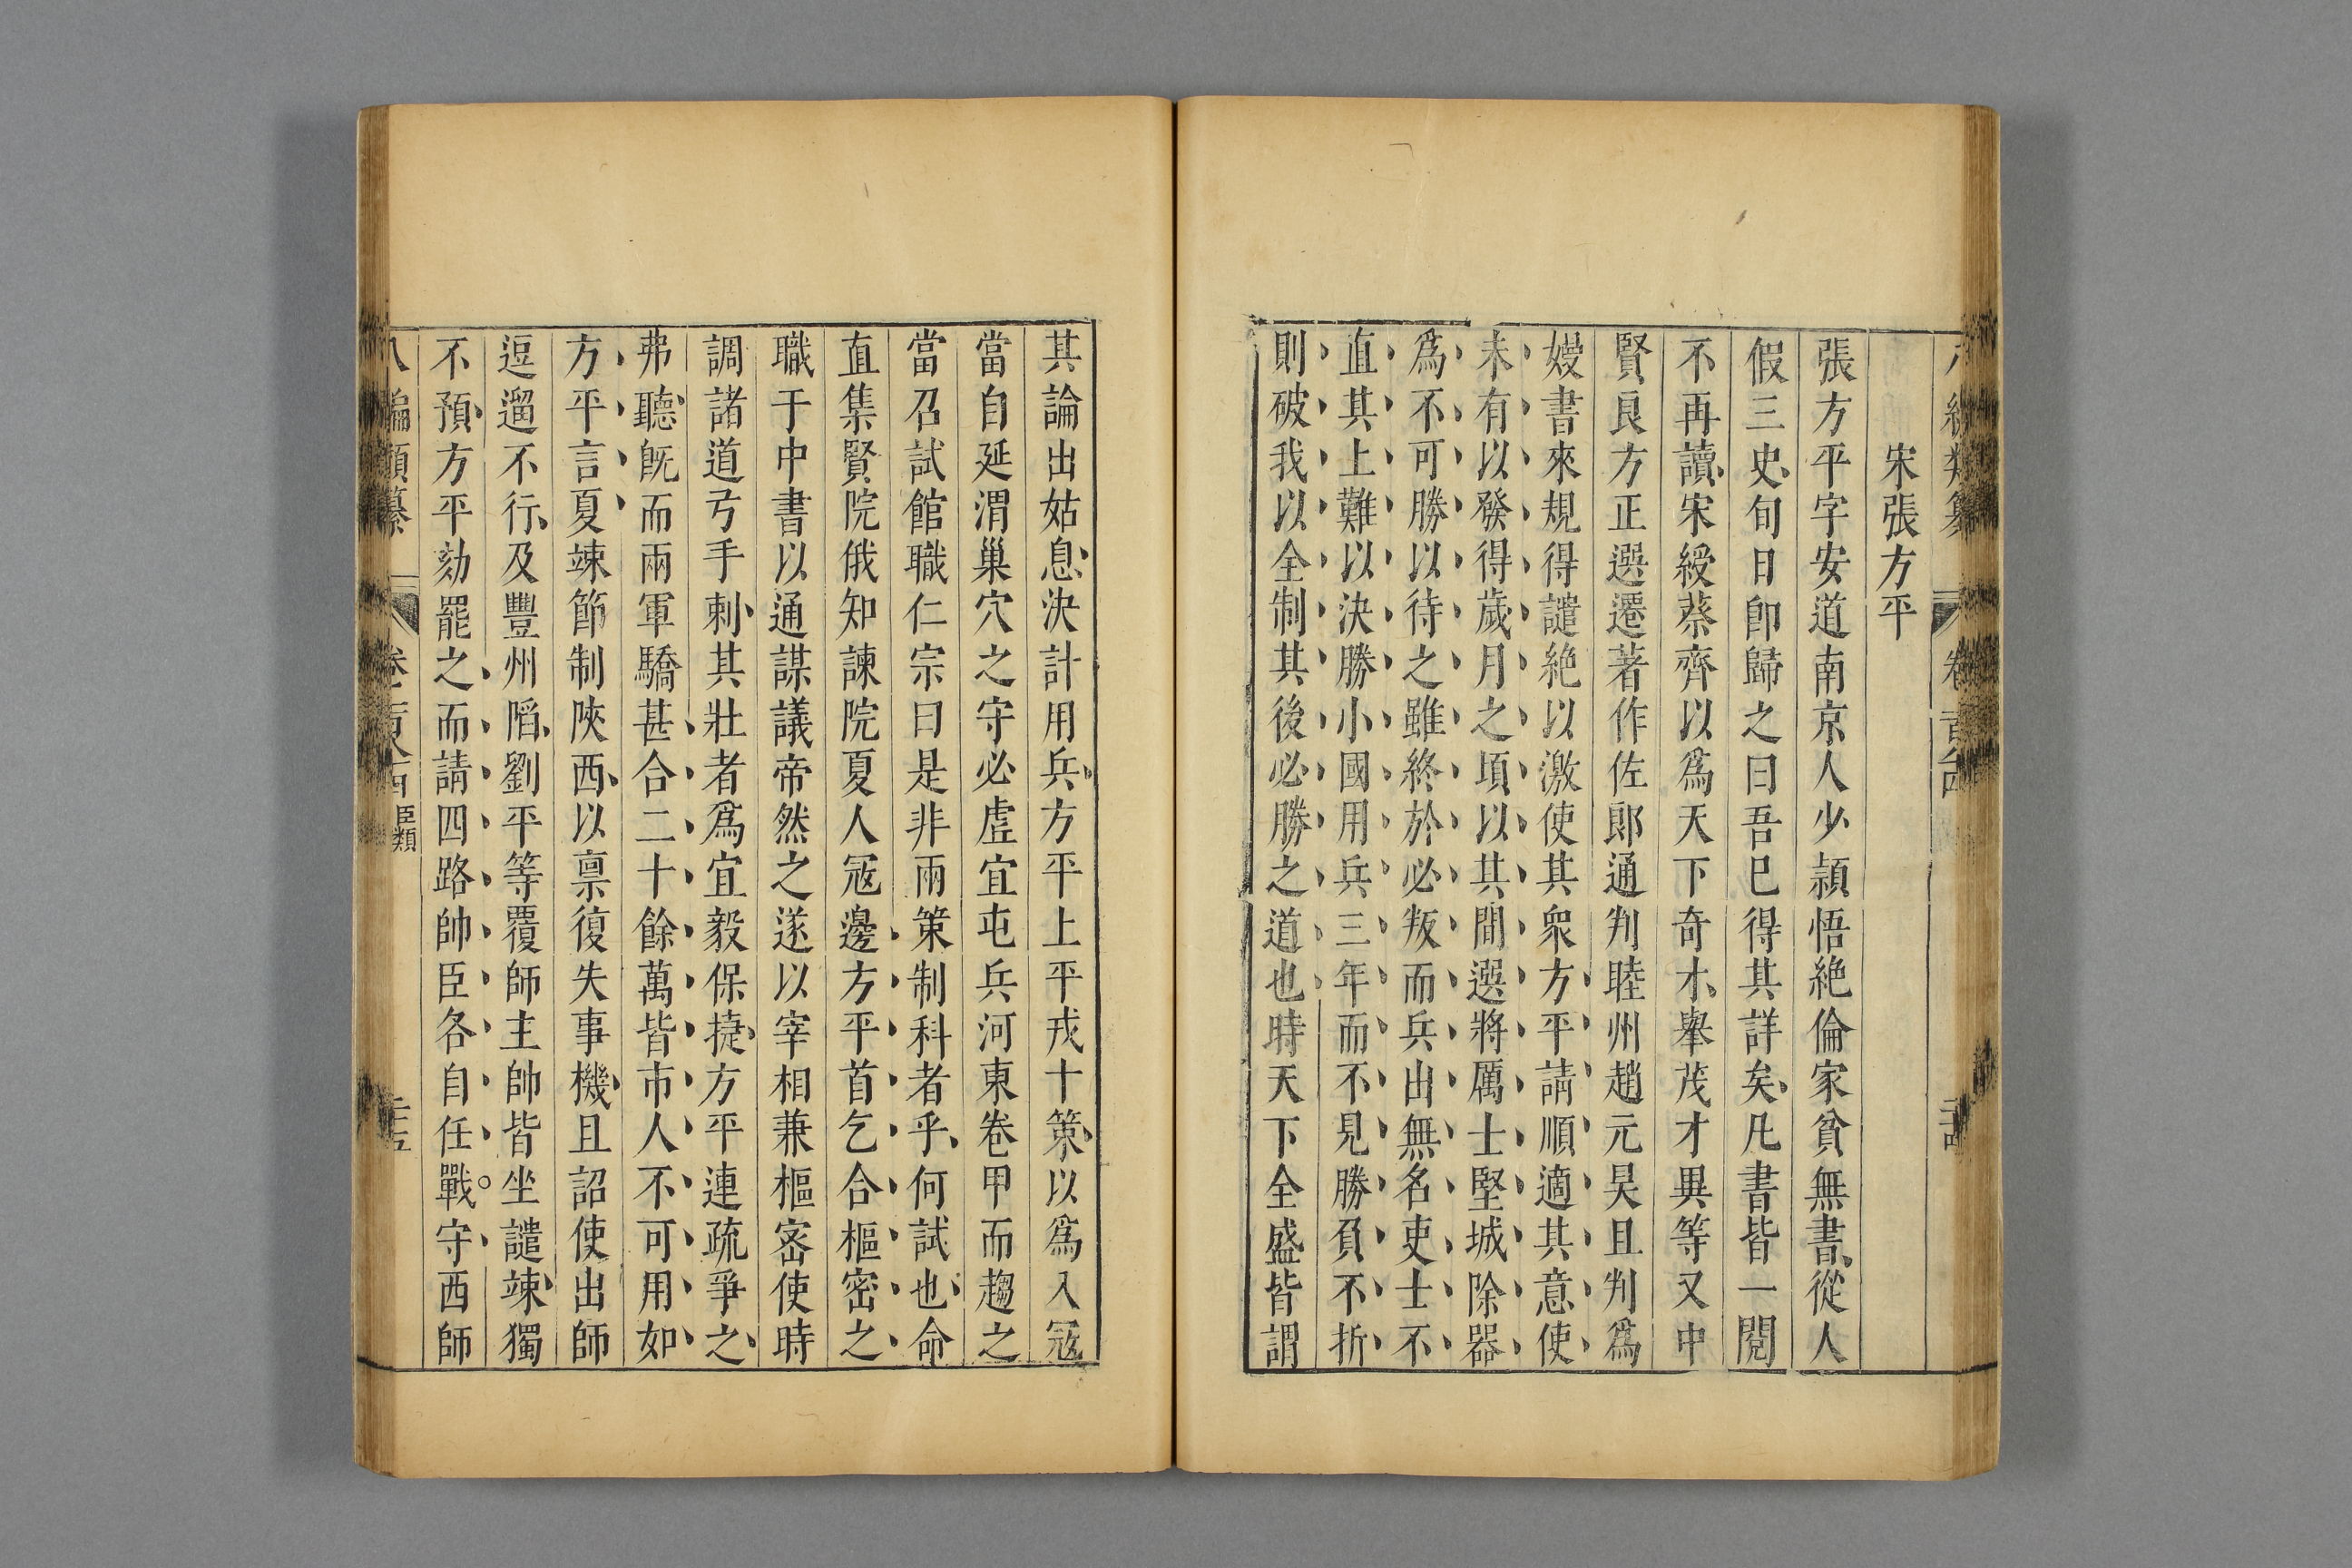 宋張方平
張方平字安道南京人少頴悟絶倫家貧無書從人
假三史旬日卽歸之曰吾已得其詳矣凡書皆一閱
不再讀宋綬蔡齊以爲天下奇才舉茂才異等又中
賢良方正選遷著作佐郎通判睦州趙元昊且判爲
嫚書來規得譴絶以激使其衆方平請順適其意使
未有以發得歲月之頃以其間選將厲士堅城除器
爲不可勝以待之雖終於必叛而兵出無名吏士不
直其上難以決勝小國用兵三年而不見勝負不折
則破我以全制其後必勝之道也時天下全盛皆謂
其論出姑息決計用兵方平上平戎十策以爲入寇
當自延渭巢穴之守必虛宜屯兵河東卷甲而趨之
當召試館職仁宗曰是非兩策制科者乎何試也命
直集賢院俄知諫院夏人寇邊方平首乞合樞密之
職于中書以通謀議帝然之遂以宰相兼樞密使時
調諸道弓手刺其壯者爲宜毅保捷方平連疏爭之
弗聽旣而兩軍驕甚合二十餘萬皆市人不可用如
方平言夏竦節制陝西以禀復失事機且詔使出師
逗遛不行及豐州陷劉平等覆師主帥皆坐譴竦獨
不預方平劾罷之而請四路帥臣各自任戰守西師
臣類